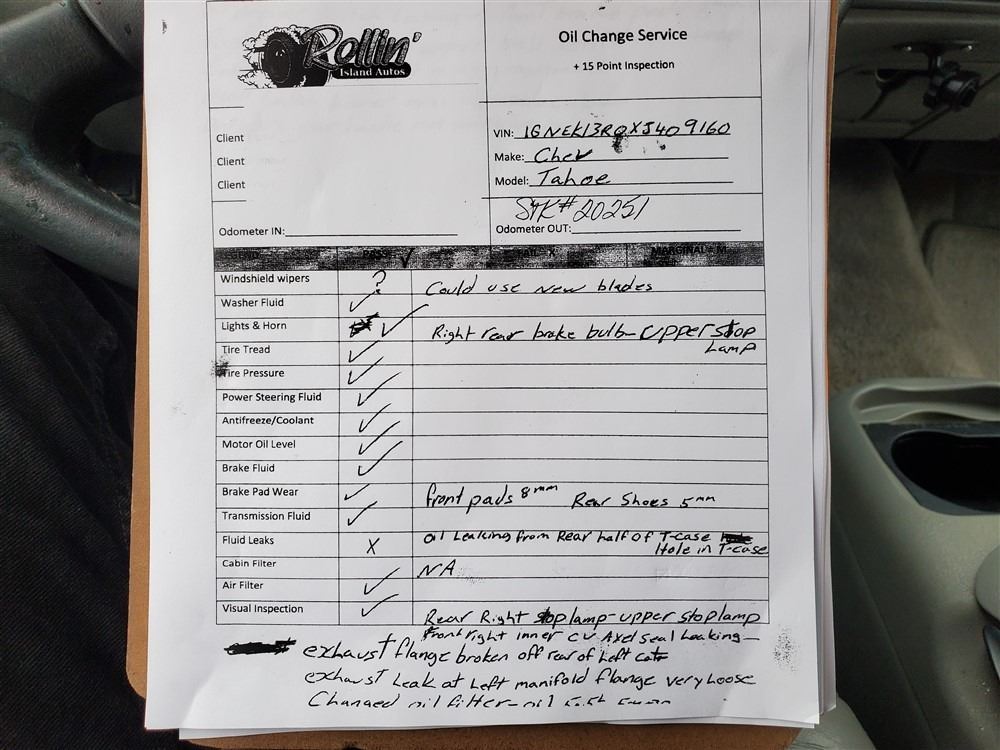 Rollin'
Island Autos
Oil Change Service
+ 15 Point Inspection
Client
Client
Client
VIN: 1GNEK13R0XJ409160
Make: Chev
Model: Tahoe
STK# 20251
Odometer IN:
Odometer OUT:
Windshield wipers ? Could use new blades
Washer Fluid ✓
Lights & Horn ✓ Right rear brake bulb- Upper stop
Lamp
Tire Tread ✓
Tire Pressure ✓
Power Steering Fluid ✓
Antifreeze/Coolant ✓
Motor Oil Level ✓
Brake Fluid ✓
Brake Pad Wear ✓ front pads 8mm Rear Shoes 5mm
Transmission Fluid ✓
Fluid Leaks X Oil Leaking from Rear half of T-case
Hole in T-case
Cabin Filter NA
Air Filter ✓
Visual Inspection ✓ Rear Right stoplamp- upper stoplamp
Front right inner CV Axel seal Leaking-
exhaust flange broken off rear of Left cat
exhaust Leak at Left manifold flange very Loose
Changed oil filter- oil